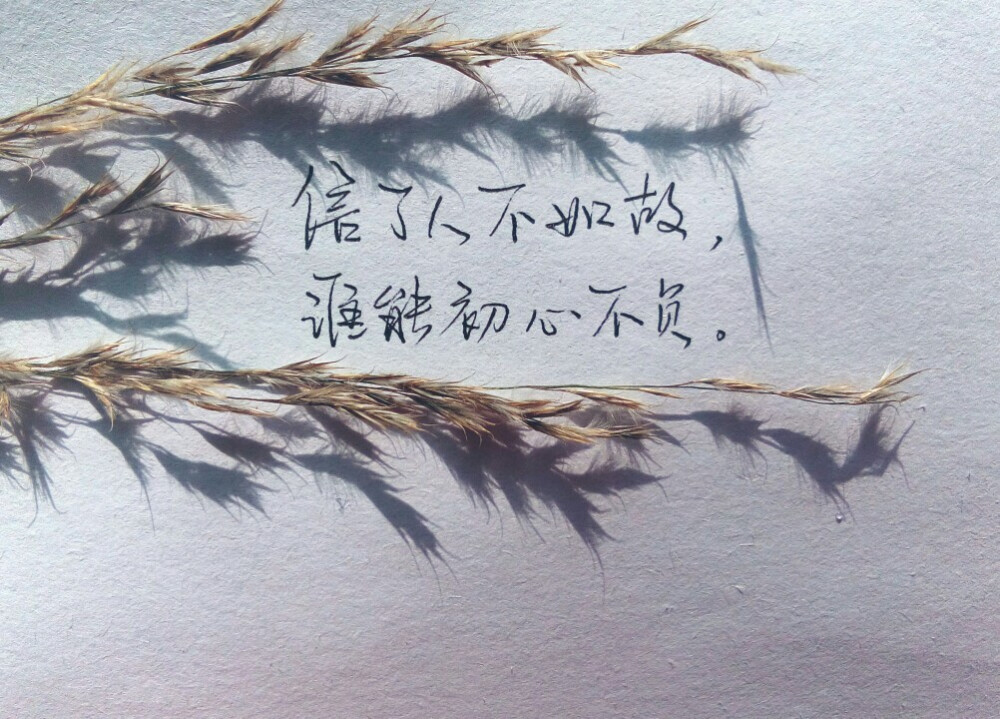 信了人不如故，
谁能初心不负。